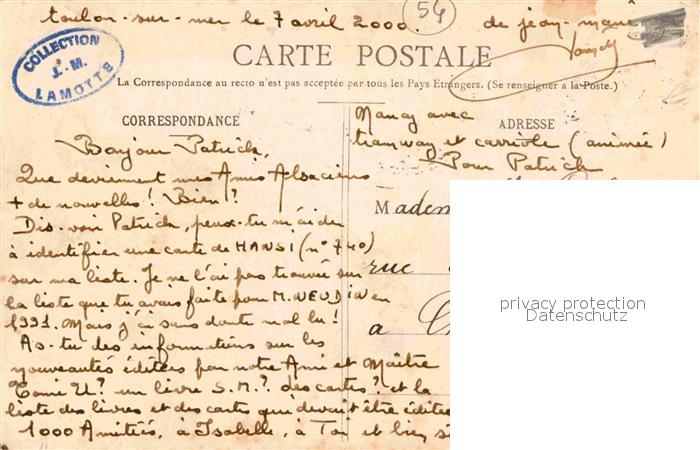 toulon-sur-mer le 7 avril 2000. (54) de jean-marie
COLLECTION
J.-M.
LAMOTTE
CARTE POSTALE
La Correspondance au recto n'est pas acceptée par tous les Pays Etrangers. (Se renseigner à la Poste.)
CORRESPONDANCE
ADRESSE
Nancy avec
tramway et carriole (animée)
Pour Patrick
Bonjour Patrick,
Que deviennent mes Amis Alsaciens
+ de nouvelles! Bien!?
Dis-voir Patrick, peux-tu m'aider
à identifier une carte de HANSI (n° 740)
sur ma liste. Je ne l'ai pas trouvée sur
la liste que tu avais faite pour M. NEUDIN en
1991. Mais j'ai sans doute mal lu!
As-tu des informations sur les
nouveautés éditées par notre Ami et Maître
Tomi U? un livre S.M.? des cartes? et la
liste des livres et des cartes qui devait être éditée
1000 Amitiés, à Isabelle, à Toi et bien
Madem
rue
a
privacy protection
Datenschutz